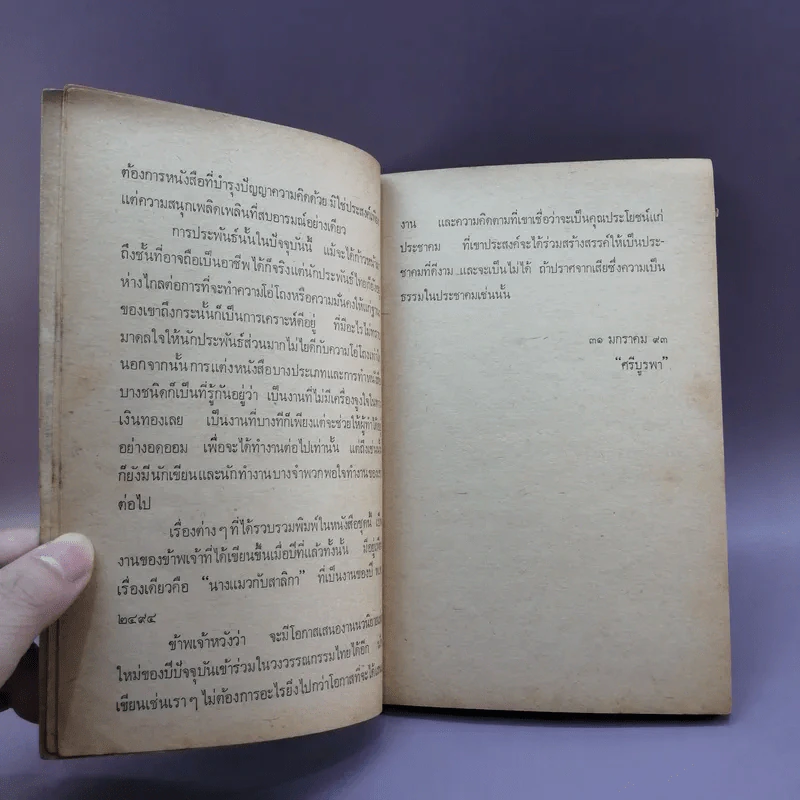 ต้องการหนังสือที่บำรุงปัญญาความคิดด้วย มิใช่ประสงค์เพียง
แต่ความสนุกเพลิดเพลินที่สบอารมณ์อย่างเดียว
การประพันธ์นั้นในปัจจุบันนี้ แม้จะได้ก้าวหน้ามา
ถึงชั้นที่อาจถือเป็นอาชีพได้ก็จริงแต่นักประพันธ์ไทยก็ยังอยู่
ห่างไกลต่อการที่จะทำความโอ่โถงหรือความมั่นคงให้แก่ฐานะ
ของเขาถึงกระนั้นก็เป็นการเคราะห์ดีอยู่ ที่มีอะไรไม่ทราบ
มาดลใจให้นักประพันธ์ส่วนมากไม่ไยดีกับความโอ่โถง
นอกจากนั้น การแต่งหนังสือบางประเภทและการทำหนังสือ
บางชนิดก็เป็นที่รู้กันอยู่ว่า เป็นงานที่ไม่มีเครื่องจูงใจใน
เงินทองเลย เป็นงานที่บางทีก็เพียงแต่จะช่วยให้ผู้ทำได้
อย่างอดออม เพื่อจะได้ทำงานต่อไปเท่านั้น แต่ถึงเช่นนั้น
ก็ยังมีนักเขียนและนักทำงานบางจำพวกพอใจทำงานของ
ต่อไป
เรื่องต่าง ๆ ที่ได้รวบรวมพิมพ์ในหนังสือชุดนี้
งานของข้าพเจ้าที่ได้เขียนขึ้นเมื่อปีที่แล้วทั้งนั้น มีอยู่
เรื่องเดียวคือ “นางแมวกับสาลิกา” ที่เป็นงานของปี
๒๔๙๔
ข้าพเจ้าหวังว่า จะมีโอกาสเสนองานนวนิยาย
ใหม่ของปีปัจจุบันเข้าร่วมในวงวรรณกรรมไทยได้อีก
เขียนเช่นเรา ๆ ไม่ต้องการอะไรยิ่งไปกว่าโอกาสที่จะได้
งาน และความคิดตามที่เขาเชื่อว่าจะเป็นคุณประโยชน์แก่
ประชาคม ที่เขาประสงค์จะได้ร่วมสร้างสรรค์ให้เป็นประ-
ชาคมที่ดีงาม และจะเป็นไม่ได้ ถ้าปราศจากเสียซึ่งความเป็น
ธรรมในประชาคมเช่นนั้น
๓๑ มกราคม ๙๓
“ศรีบูรพา”